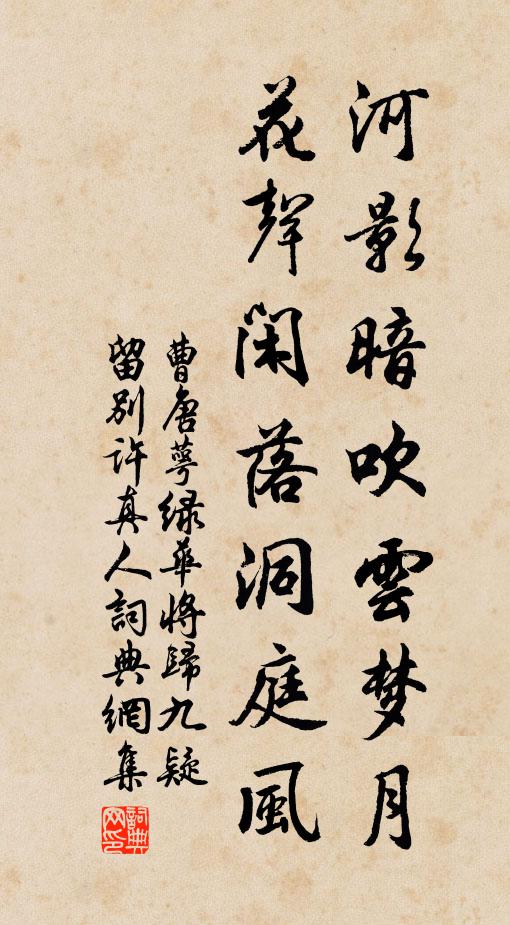 河影暗吹雲梦月
花聲闲落洞庭風
曹唐萼绿華将歸九疑
留别许真人詞典網集
詞典
网印